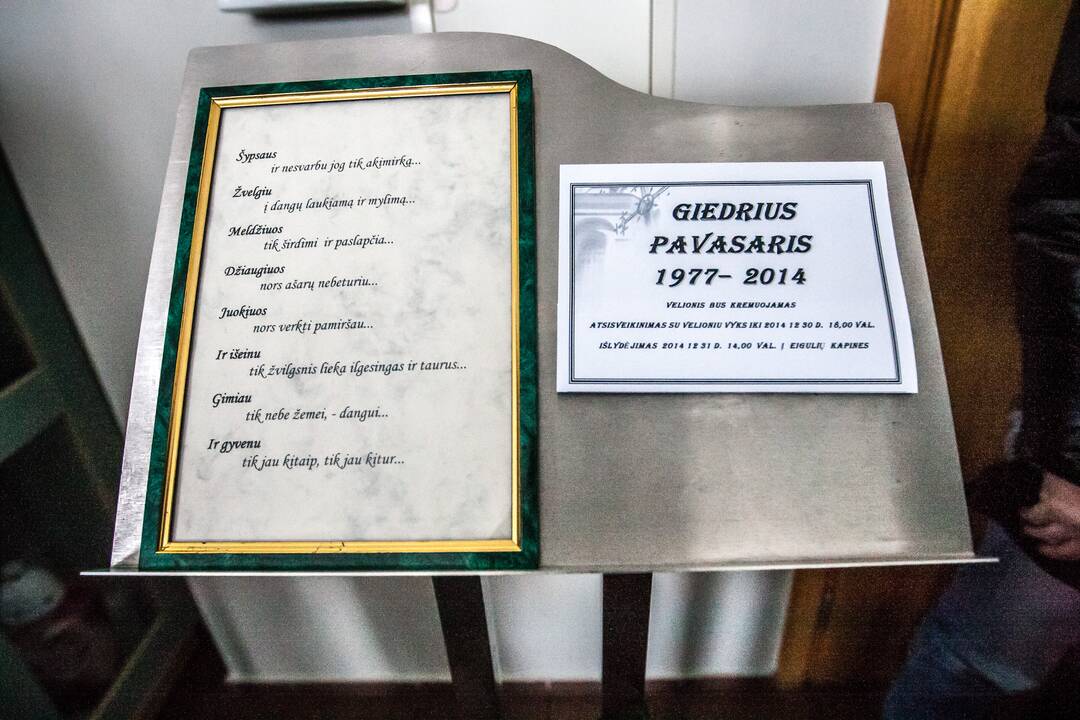 Šypsaus
ir nesvarbu jog tik akimirką...
Žvelgiu
į dangų laukiamą ir mylimą...
Meldžiuos
tik širdimi ir paslapčia...
Džiaugiuos
nors ašarų nebeturiu...
Juokiuos
nors verkti pamiršau...
Ir išeinu
tik žvilgsnis lieka ilgesingas ir taurus...
Gimiau
tik nebe žemei, - dangui...
Ir gyvenu
tik jau kitaip, tik jau kitur...
GIEDRIUS
PAVASARIS
1977– 2014
VELIONIS BUS KREMUOJAMAS
ATSISVEIKINIMAS SU VELIONIU VYKS IKI 2014 12 30 D. 18,00 VAL.
IŠLYDĖJIMAS 2014 12 31 D. 14,00 VAL. Į EIGULIŲ KAPINES